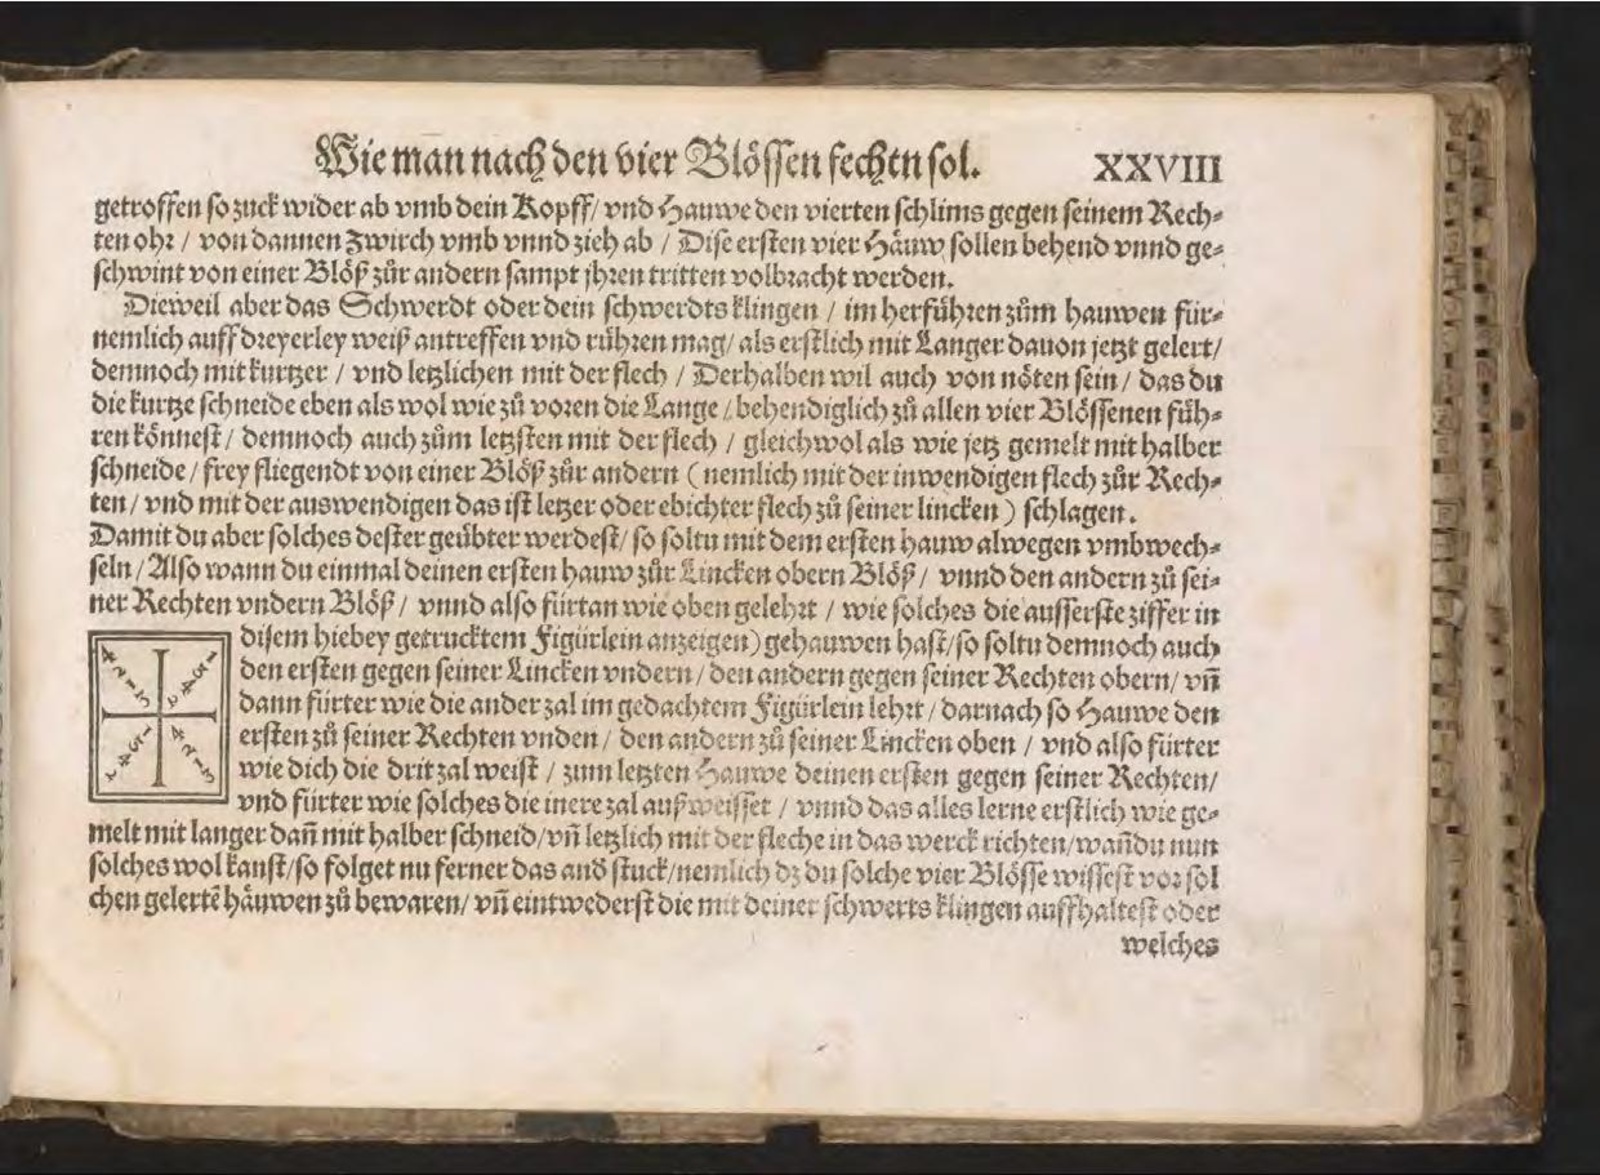 Wie man nach den vier Blössen fechtn sol. XXVIII
getroffen so zuck wider ab vmb dein Kopff/ vnd Hauwe den vierten schlims gegen seinem Rech-
ten ohr / von dannen Zwirch vmb vnnd zieh ab / Dise ersten vier Häuw sollen behend vnnd ge-
schwint von einer Blöß zůr andern sampt jhren tritten volbracht werden.
Dieweil aber das Schwerdt oder dein schwerdts klingen / im herführen zům hauwen für-
nemlich auff dreyerley weiß antreffen vnd rühren mag/ als erstlich mit Langer dauon jetzt gelert/
demnoch mit kurtzer / vnd letzlichen mit der flech / Derhalben wil auch von nöten sein / das du
die kurtze schneide eben als wol wie zů voren die Lange / behendiglich zů allen vier Blössenen füh-
ren könnest / demnoch auch zům letzsten mit der flech / gleichwol als wie jetz gemelt mit halber
schneide / frey fliegendt von einer Blöß zůr andern (nemlich mit der inwendigen flech zůr Rech-
ten / vnd mit der auswendigen das ist letzer oder ebichter flech zů seiner lincken) schlagen.
Damit du aber solches dester geübter werdest/ so soltu mit dem ersten hauw alwegen vmbwech-
seln / Also wann du einmal deinen ersten hauw zůr Lincken obern Blöß / vnnd den andern zů sei-
ner Rechten vndern Blöß / vnnd also fürtan wie oben gelehrt / wie solches die ausserste ziffer in
disem hiebey getrucktem Figürlein anzeigen) gehauwen hast/so soltu demnoch auch
den ersten gegen seiner Lincken vndern / den andern gegen seiner Rechten obern/ vñ
dann fürter wie die ander zal im gedachtem Figürlein lehrt / darnach so Hauwe den
ersten zů seiner Rechten vnden / den andern zů seiner Lincken oben / vnd also fürter
wie dich die drit zal weist / zum letzten Hauwe deinen ersten gegen seiner Rechten/
vnd fürter wie solches die inere zal außweisset / vnnd das alles lerne erstlich wie ge-
melt mit langer dañ mit halber schneid/vñ letzlich mit der fleche in das werck richten/wañdu nun
solches wol kanst/so folget nu ferner das and stuck/nemlich dz du solche vier Blösse wissest vor sol
chen gelertē häuwen zů bewaren/ vñ eintwederst die mit deiner schwerts klingen auffhaltest oder
welches